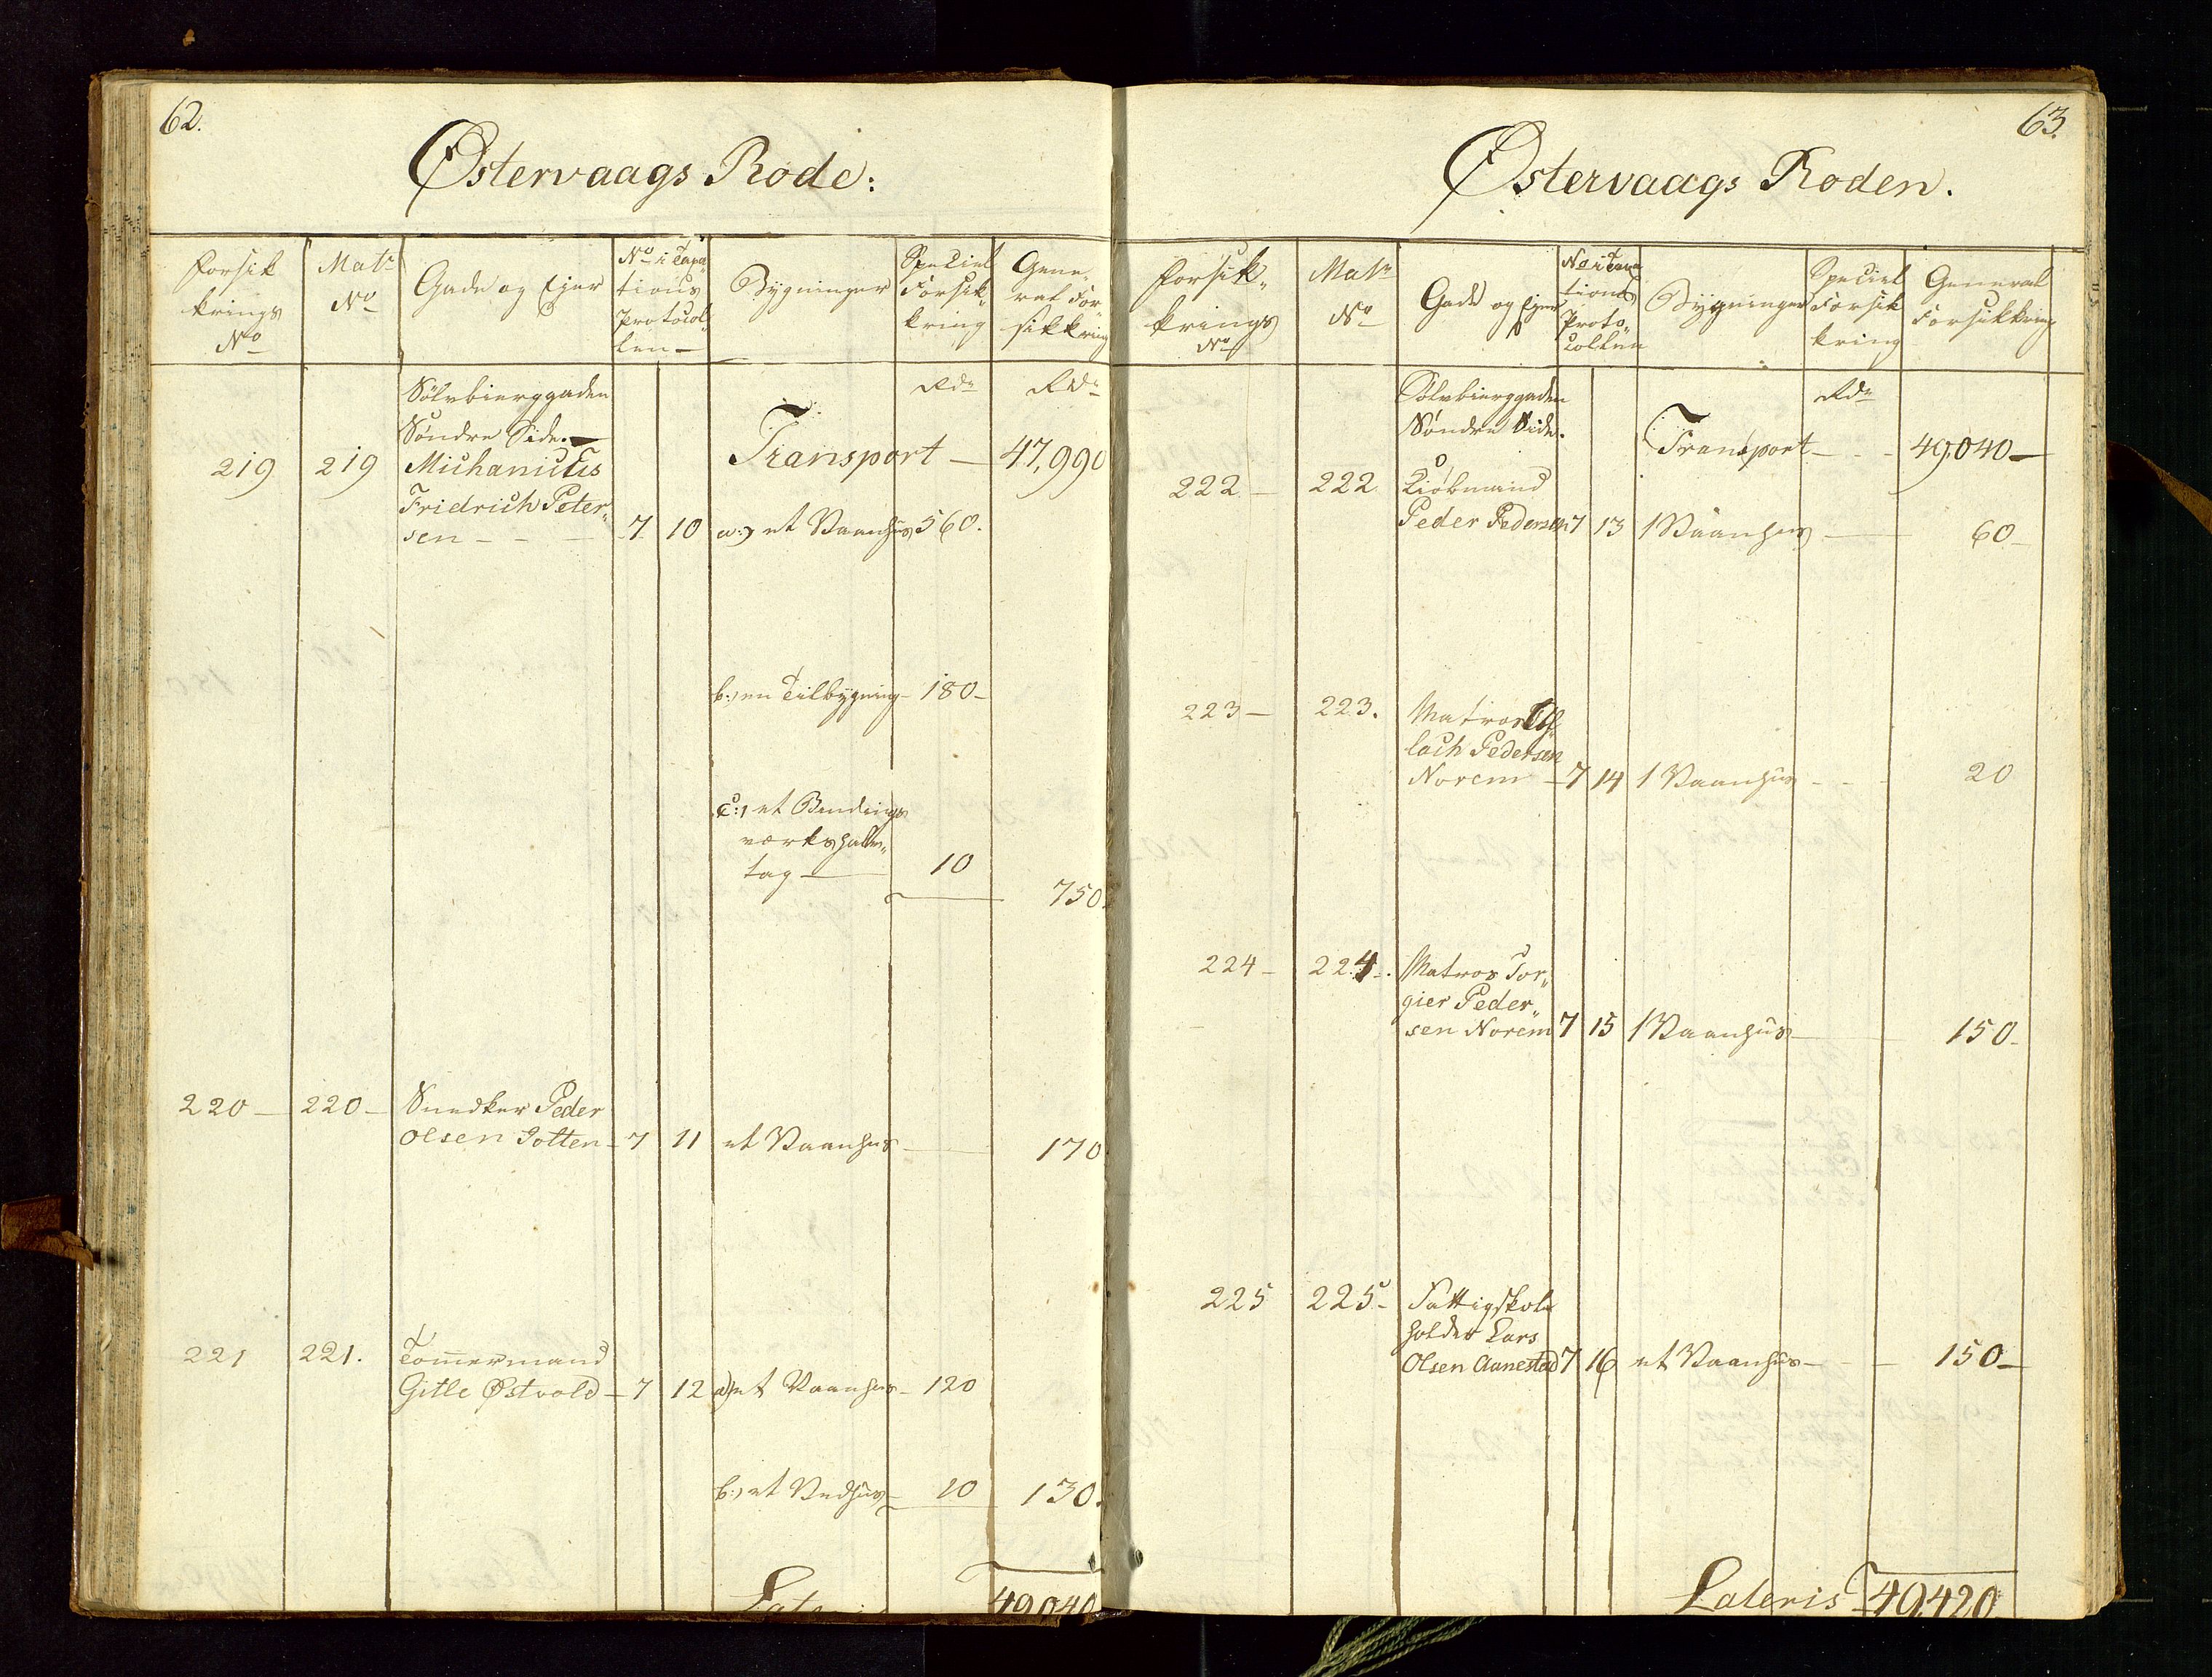 62.
Østervaags Rode:
Forsik
krings
No
Matr
No
Gade og Ejer
No i Taxa
tions
Protocol
len
Bygninger
Speciel
Forsik-
kring
Gene
ral For
sikkring
Rdr
Rdr
Sølvbierggaden
Søndre Side.
Transport — 47,990
219 219 Michanicus
Fridrich Peter„
sen - - — 7 10 a:) et Vaanhus 560.
b:) en Tilbygning - 180-
c:) et Bindings
værks halv„
tag — 10
750.
220 — 220 — Snedker Peder
Olsen Jotten - 7 11 et Vaanhus — 170
221 221. Tømmermand
Gitle Østvold — 7 12 a) et Vaanhus - 120
b:) et Vedhus — 10 130.
Lateris 49,040
63.
Østervaags Roden.
Forsik„
krings
No
Matr
No
Gade og Ejer
No i Taxa
tions
Proto„
collen
Bygninger
Speciel
Forsik
kring
General
Forsikkring
Rdr
Sølvbierggaden
Søndre Side.
Transport - - - 49,040 —
222 — 222 Kiøbmand
Peder Pedersen 7 13 1 Vaanhus — 60-
223 — 223. Matros As„
lach Pedersen
Norem — 7 14 1 Vaanhus - - - 20
224 — 224. Matros Tor„
gier Peder„
sen Norem 7 15 1 Vaanhus — 150-
225 225- Fattigskole
holder Lars
Olsen Aanestad 7 16 et Vaanhus — - — 150 —
Lateris 49,420